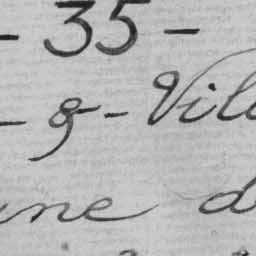 - 35 -
- & - Vil
ne d